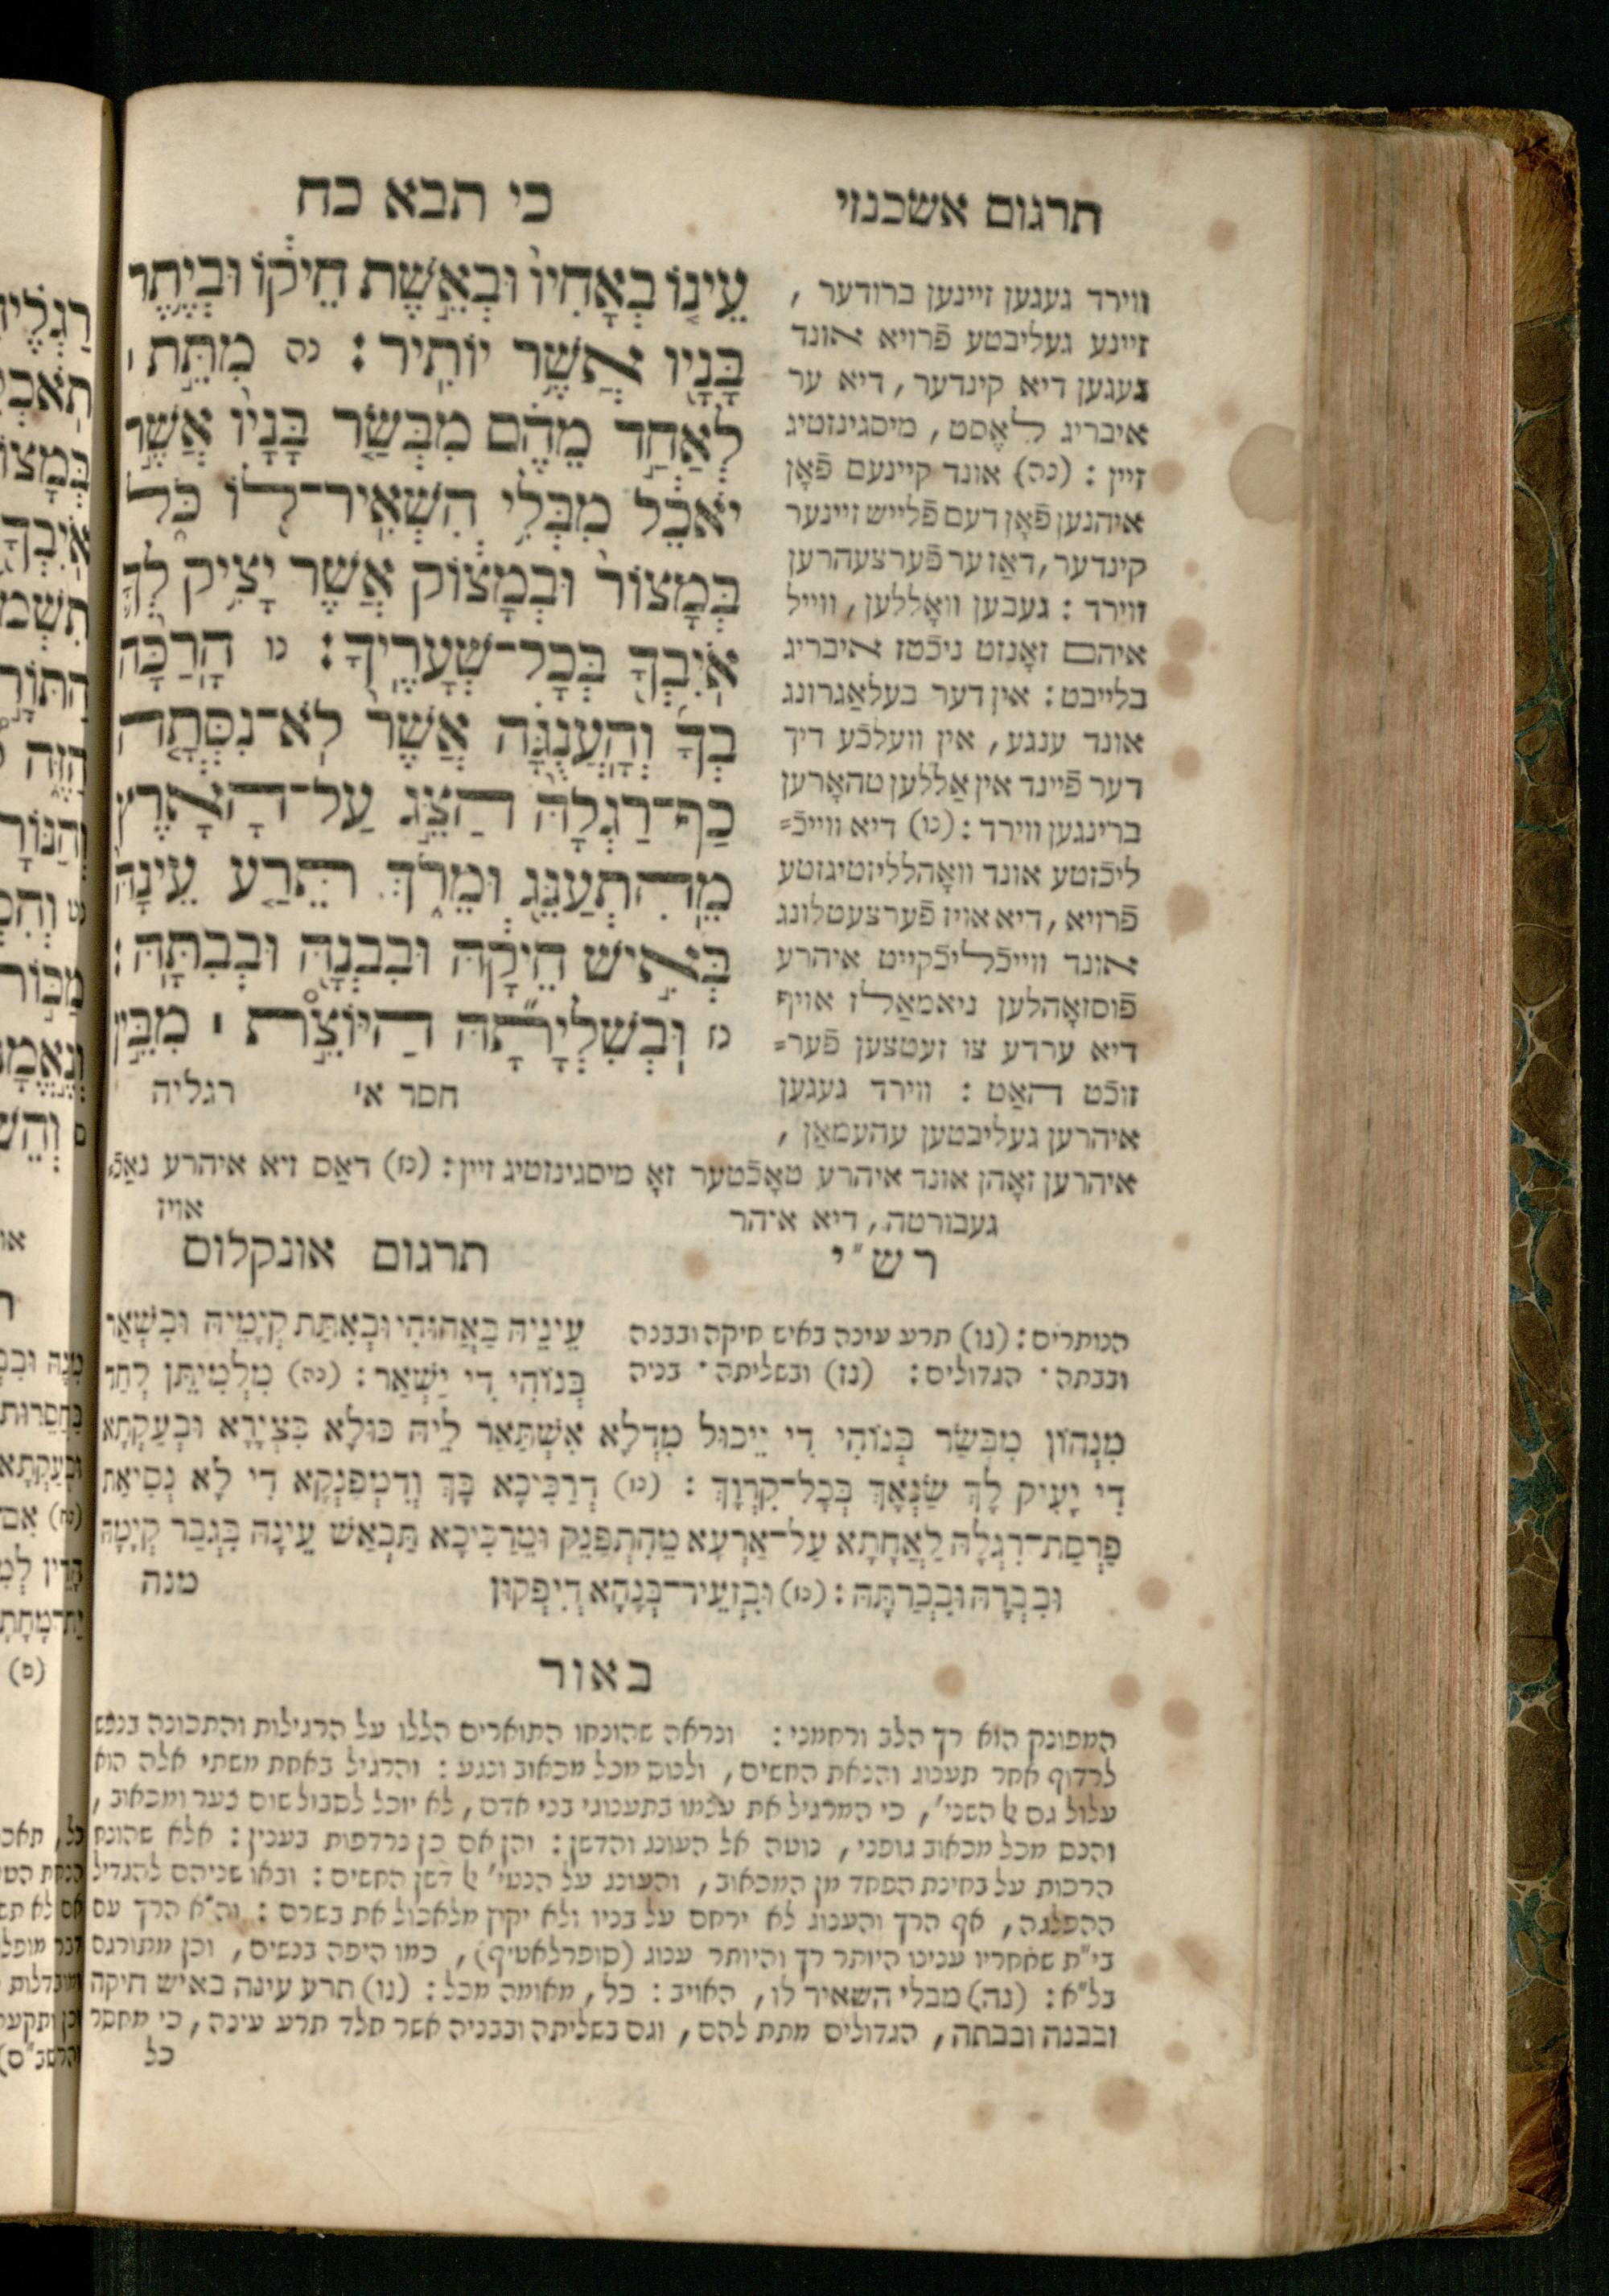 תרגום אשכנזי
כי תבא כח
עֵינ֨וֹ בְאָחִ֜יו וּבְאֵ֤שֶׁת חֵיקוֹ֙ וּבְיֶ֣תֶר
בָּנָ֔יו אֲשֶׁ֖ר יוֹתִֽיר׃ נה מִתֵּ֣ת ׀
לְאַחַ֣ד מֵהֶ֗ם מִבְּשַׂ֤ר בָּנָיו֙ אֲשֶׁ֣ר
יֹאכֵ֔ל מִבְּלִ֥י הִשְׁאִֽיר־ל֖וֹ כֹּ֑ל
בְּמָצוֹר֙ וּבְמָצ֔וֹק אֲשֶׁ֨ר יָצִ֥יק לְךָ֛
אֹֽיִבְךָ֖ בְּכָל־שְׁעָרֶֽיךָ׃ נו הָֽרַכָּ֨ה
בְךָ֜ וְהָֽעֲנֻגָּ֗ה אֲשֶׁ֨ר לֹֽא־נִסְּתָ֤ה
כַף־רַגְלָהּ֙ הַצֵּ֣ג עַל־הָאָ֔רֶץ
מֵֽהִתְעַנֵּ֖ג וּמֵרֹ֑ךְ תֵּרַ֤ע עֵינָהּ֙
בְּאִ֣ישׁ חֵיקָ֔הּ וּבִבְנָ֖הּ וּבְבִתָּֽהּ׃
נז וּֽבְשִׁלְיָתָ֞הּ הַיּוֹצֵ֣ת ׀ מִבֵּ֣ין
חסר א' רגליה
ווירד געגען זיינען ברודער,
זיינע געליבטע פֿרויא אונד
געגען דיא קינדער, דיא ער
איבריג לאֶסט, מיסגינזטיג
זיין: (נה) אונד קיינעם פֿאָן
איהנען פֿאָן דעם פֿלייש זיינער
קינדער, דאַז ער פֿערצעהרען
ווירד: געבען וואָללען, ווייל
איהם זאָנזט ניכֿטז איבריג
בלייבט: אין דער בעלאַגרונג
אונד ענגע, אין וועלכֿע דיך
דער פֿיינד אין אַללען טהאָרען
ברינגען ווירד: (נו) דיא ווייכֿ=
ליכֿזטע אונד וואָהלליזטיגזטע
פֿרויא, דיא אויז פֿערצעטלונג
אונד ווייכֿליכֿקייט איהרע
פֿוסזאָהלען ניאמאַלז אויף
דיא ערדע צו זעטצען פֿער=
זוכֿט האַט: ווירד געגען
איהרען געליבטען עהעמאַן,
איהרען זאָהן אונד איהרע טאָכֿטער זאָ מיסגינזטיג זיין: (נז) דאַס זיא איהרע נאַכֿ,
געבורטה, דיא איהר
אויז
רש"י
תרגום אונקלוס
הנותרים: (נו) תרע עינה באיש חיקה ובבנה
ובבתה. הגדולים: (נז) ובשליתה. בניה
עֵינֵיהּ בַּאֲחוּהִי וּבְאִתַּת קְיָמֵיהּ וּבִשְׁאַר
בְּנוֹהִי דִּי יַשְׁאַר: (נה) מִלְּמִיתַּן לְחַד
מִנְהוֹן מִבְּשַׂר בְּנוֹהִי דִּי יֵיכוּל מִדְּלָא אִשְׁתַּאַר לֵיהּ כּוּלָא בִּצְיָרָא וּבְעַקְתָא
דִּי יָעִיק לָךְ שַׂנְאָךְ בְּכָל־קִרְוָךְ: (נו) דְּרַכִּיכָא בָּךְ וְדִמְפַנְקָא דִּי לָא נְסִיאַת
פַּרְסַת־רִגְלָהּ לַאֲחָתָא עַל־אַרְעָא מֵהִתְפַּנֵּק וּמֵרַכִּיכָא תַּבְאֵשׁ עֵינָהּ בִּגְבַר קְיָמָהּ
וּבִבְרָהּ וּבִבְרַתָּהּ: (נז) וּבִזְעֵיר־בְּנָהָא דְיִפְּקוּן
מנה
באור
המפונק הוא רך הלב ורחמני: ונראה שהונחו התוארים הללו על הרגילות והתכונה בנפש
לרדוף אחר תענוג והנאת החשים, ולנוס מכל מכאוב ונגע: והרגיל באחת משתי אלה הוא
עלול גם אל השני', כי המרגיל את עצמו בתענוגי בני אדם, לא יוכל לסבול שום צער ומכאוב,
והנס מכל מכאוב גופני, נוטה אל העונג והדשן: והן אם כן נרדפות בענין: אלא שהונח
הרכות על בחינת הפחד מן המכאוב, והעונג על הנטי' אל דשן החשים: ובאו שניהם להגדיל
ההפלגה, אף הרך והענוג לא ירחם על בניו ולא יקוץ מלאכול את בשרם: וה"א הרך עם
בי"ת שאחריו ענינו היותר רך והיותר ענוג (סופרלאטיף), כמו היפה בנשים, וכן מתורגם
בל"א: (נה) מבלי השאיר לו, האויב: כל, מאומה מכל: (נו) תרע עינה באיש חיקה
ובבנה ובבתה, הגדולים מתת להם, וגם בשליתה ובבניה אשר תלד תרע עינה, כי מחסר
כל